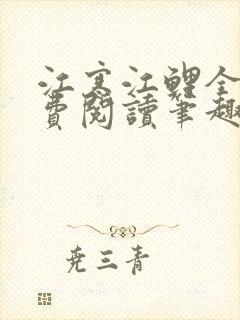 江寒江鯉全
費閱讀筆趣
尭三青